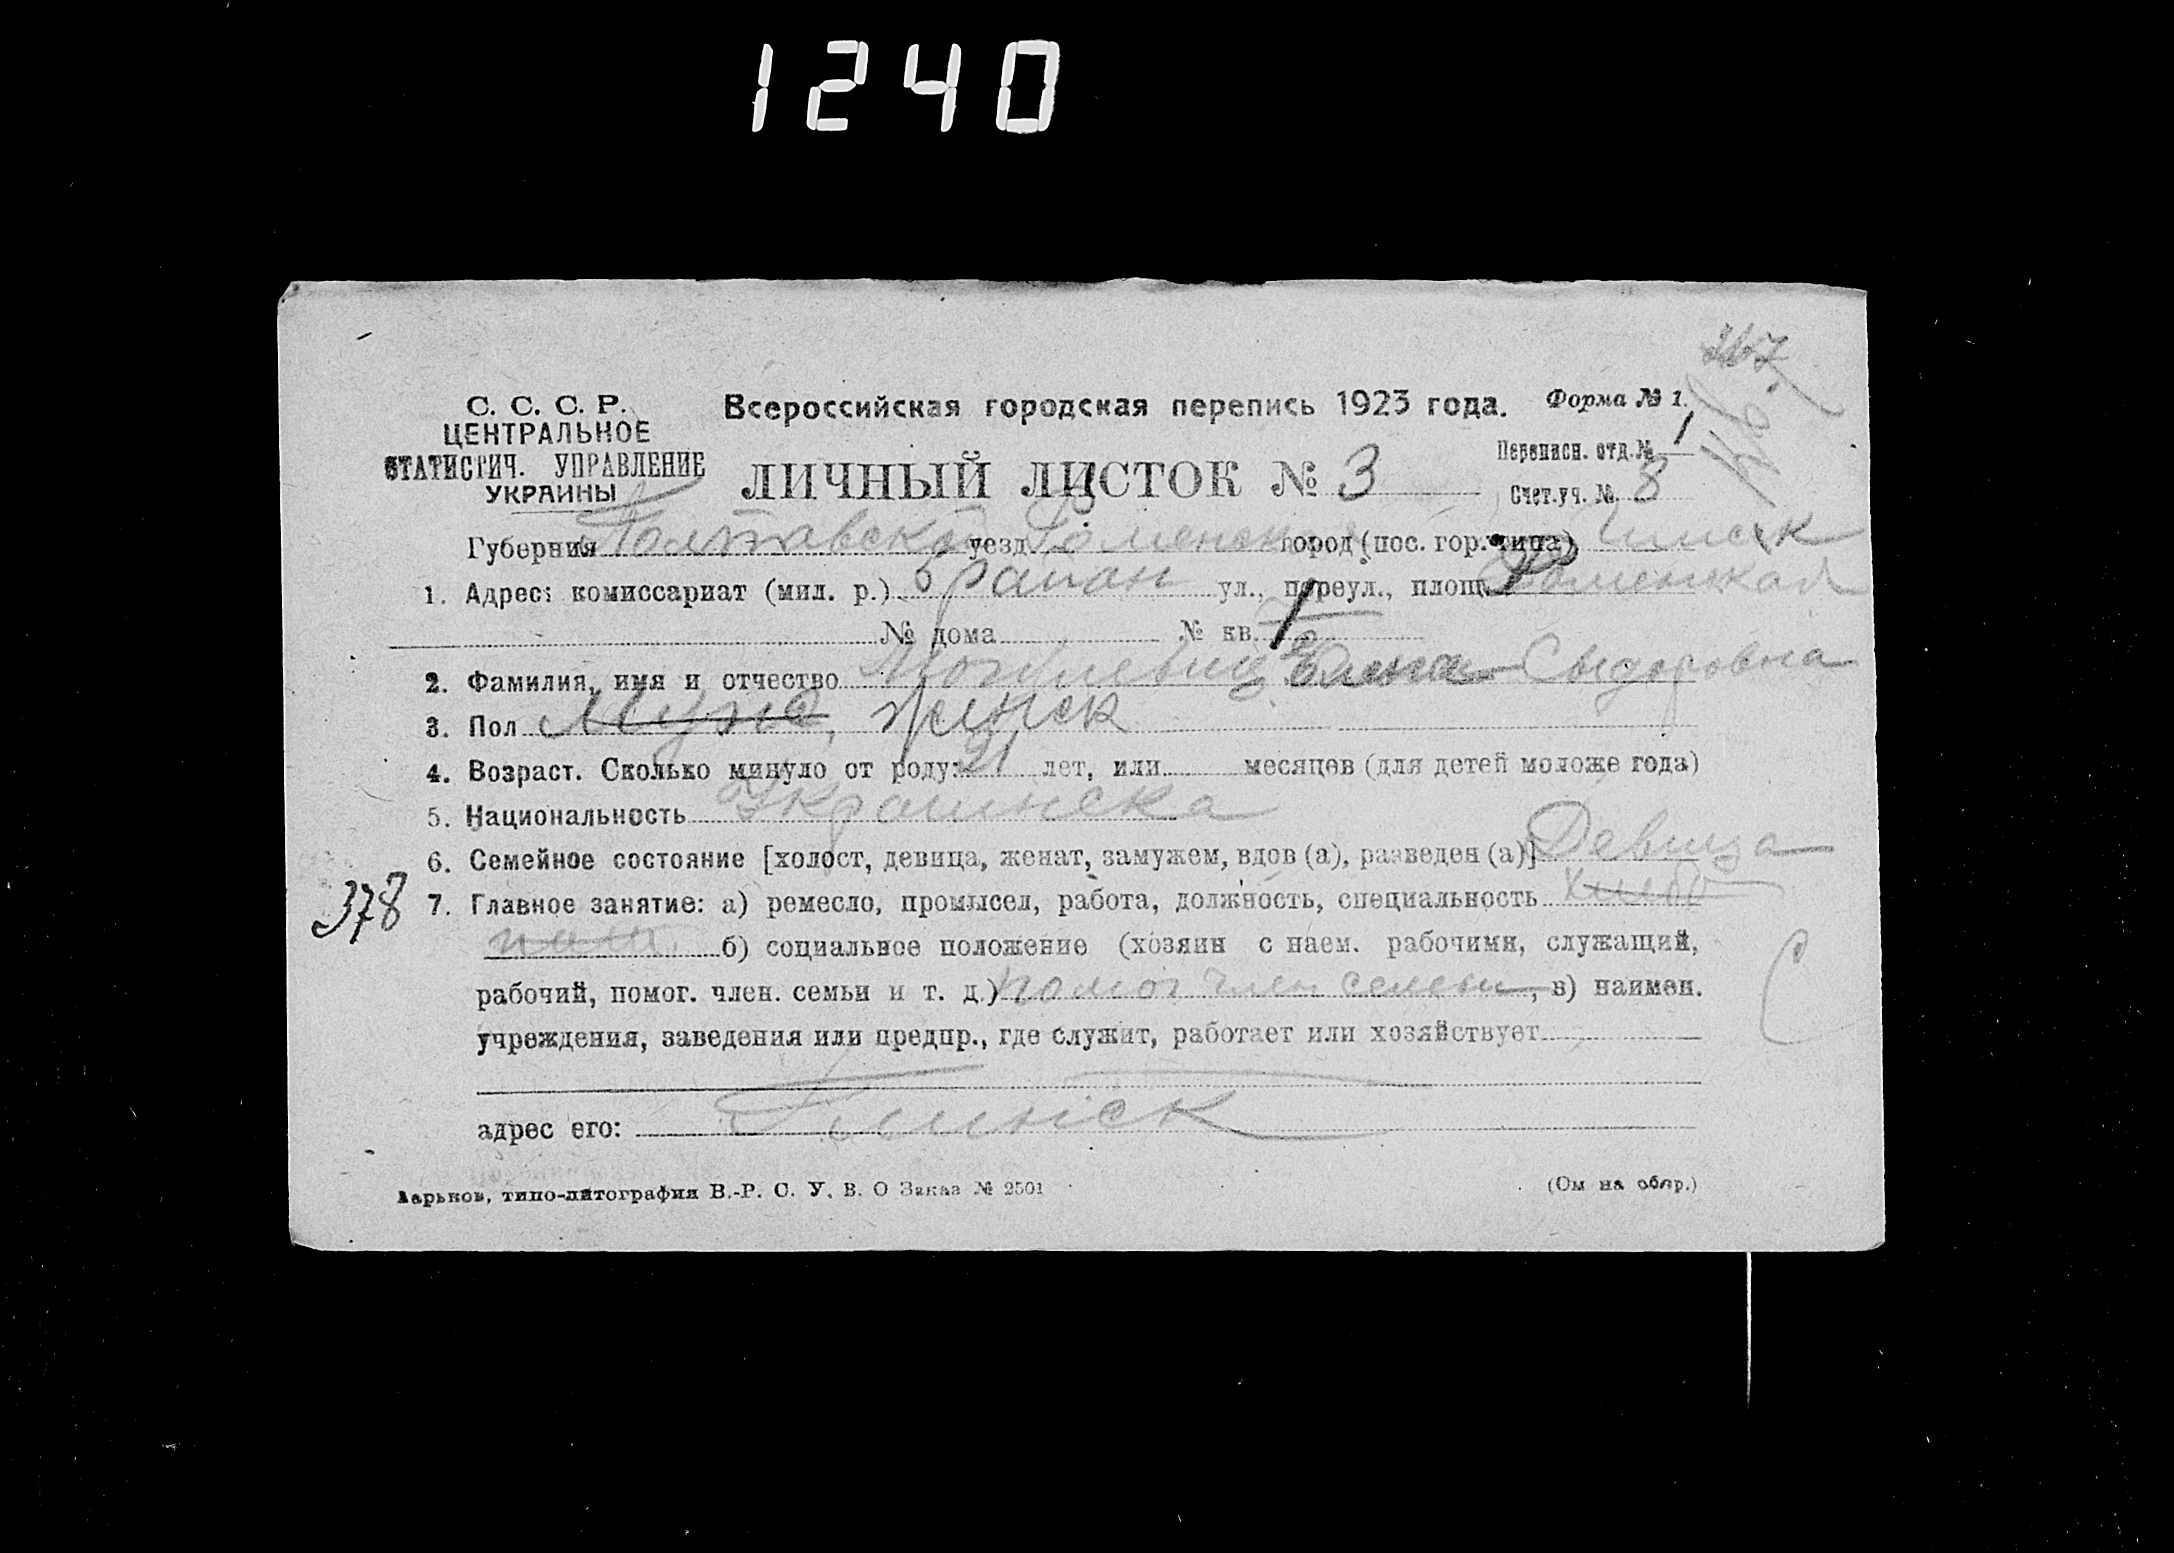 1240
С. С. С. Р.
ЦЕНТРАЛЬНОЕ
СТАТИСТИЧ. УПРАВЛЕНИЕ
УКРАИНЫ
Всероссийская городская перепись 1923 года.
Форма № 1.
ЛИЧНЫЙ ЛИСТОК № 3
Переписн. отд. № 1
Счет.уч. №. 8
Губерния Полтавской уезд Роменский город (пос. гор. типа) Глинск
1. Адрес: комиссариат (мил. р.) район ул., переул., площ. Роменская
№ дома № кв.
2. Фамилия, имя и отчество Елена Сыдоровна
3. Пол женск
4. Возраст. Сколько минуло от роду: 21 лет, или месяцев (для детей моложе года)
5. Национальность Украинска
6. Семейное состояние [холост, девица, женат, замужем, вдов (а), разведен (а)] Девица
378
7. Главное занятие: а) ремесло, промысел, работа, должность, специальность хлебо
паш. б) социальное положение (хозяин с наем. рабочими, служащий,
рабочий, помог. член. семьи и т. д.) помог член семьи, в) наимен.
учреждения, заведения или предпр., где служит, работает или хозяйствует
адрес его: Глинск
Харьков, типо-литография В.-Р. С. У. В. О Заказ № 2501
(См на обор.)